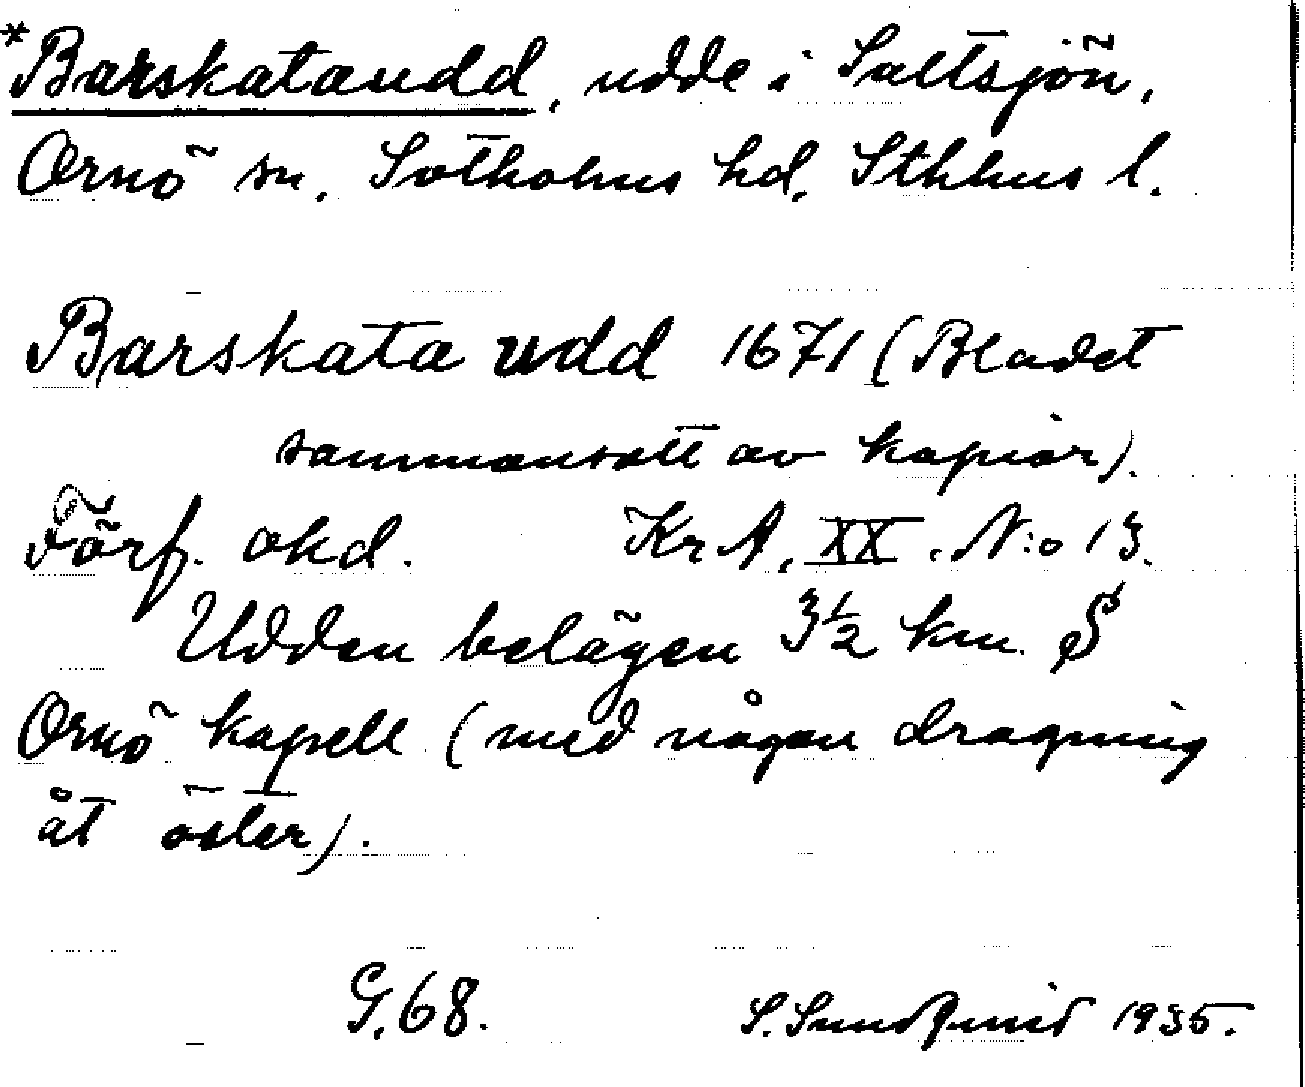 *Barskataudd, udde i Saltsjön,
Ornö sn. Sotholms hd, Sthlms l.
Barskata udd 1671 (Bladet
sammansatt av kopior).
Förf. okd. KrA, XX. N:o 13.
Udden belägen 3½ km S
Ornö kapell (med någon dragning
åt öster).
G.68. S. Sundqvist 1935.